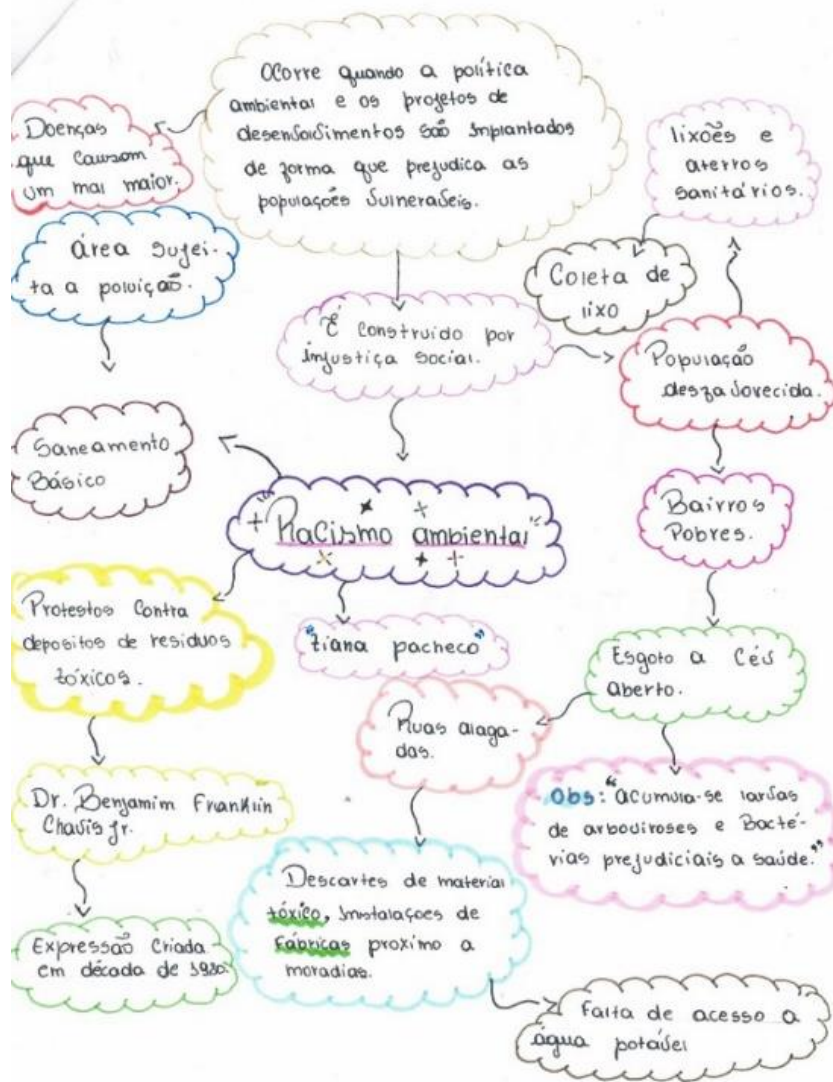 Ocorre quando a política
ambiental e os projetos de
desenvolvimentos são implantados
de forma que prejudica as
populações vulneráveis.
Doenças
que causam
um mal maior.
lixões e
aterros
sanitários.
área sujei-
ta a poluição.
Coleta de
lixo
É construido por
injustiça social.
População
desfavorecida.
Saneamento
Básico
"Racismo ambiental"
Bairros
Pobres.
Protestos contra
depositos de residuos
tóxicos.
"tiana pacheco"
Esgoto a Céu
aberto.
Ruas alaga-
das.
Dr. Benjamim Franklin
Chavis jr.
Obs: "acumula-se larvas
de arboviroses e Bacté-
rias prejudiciais a saúde."
Descartes de material
tóxico, Instalações de
Fábricas proximo a
moradias.
Expressão Criada
em década de 1980.
Falta de acesso a
água potável